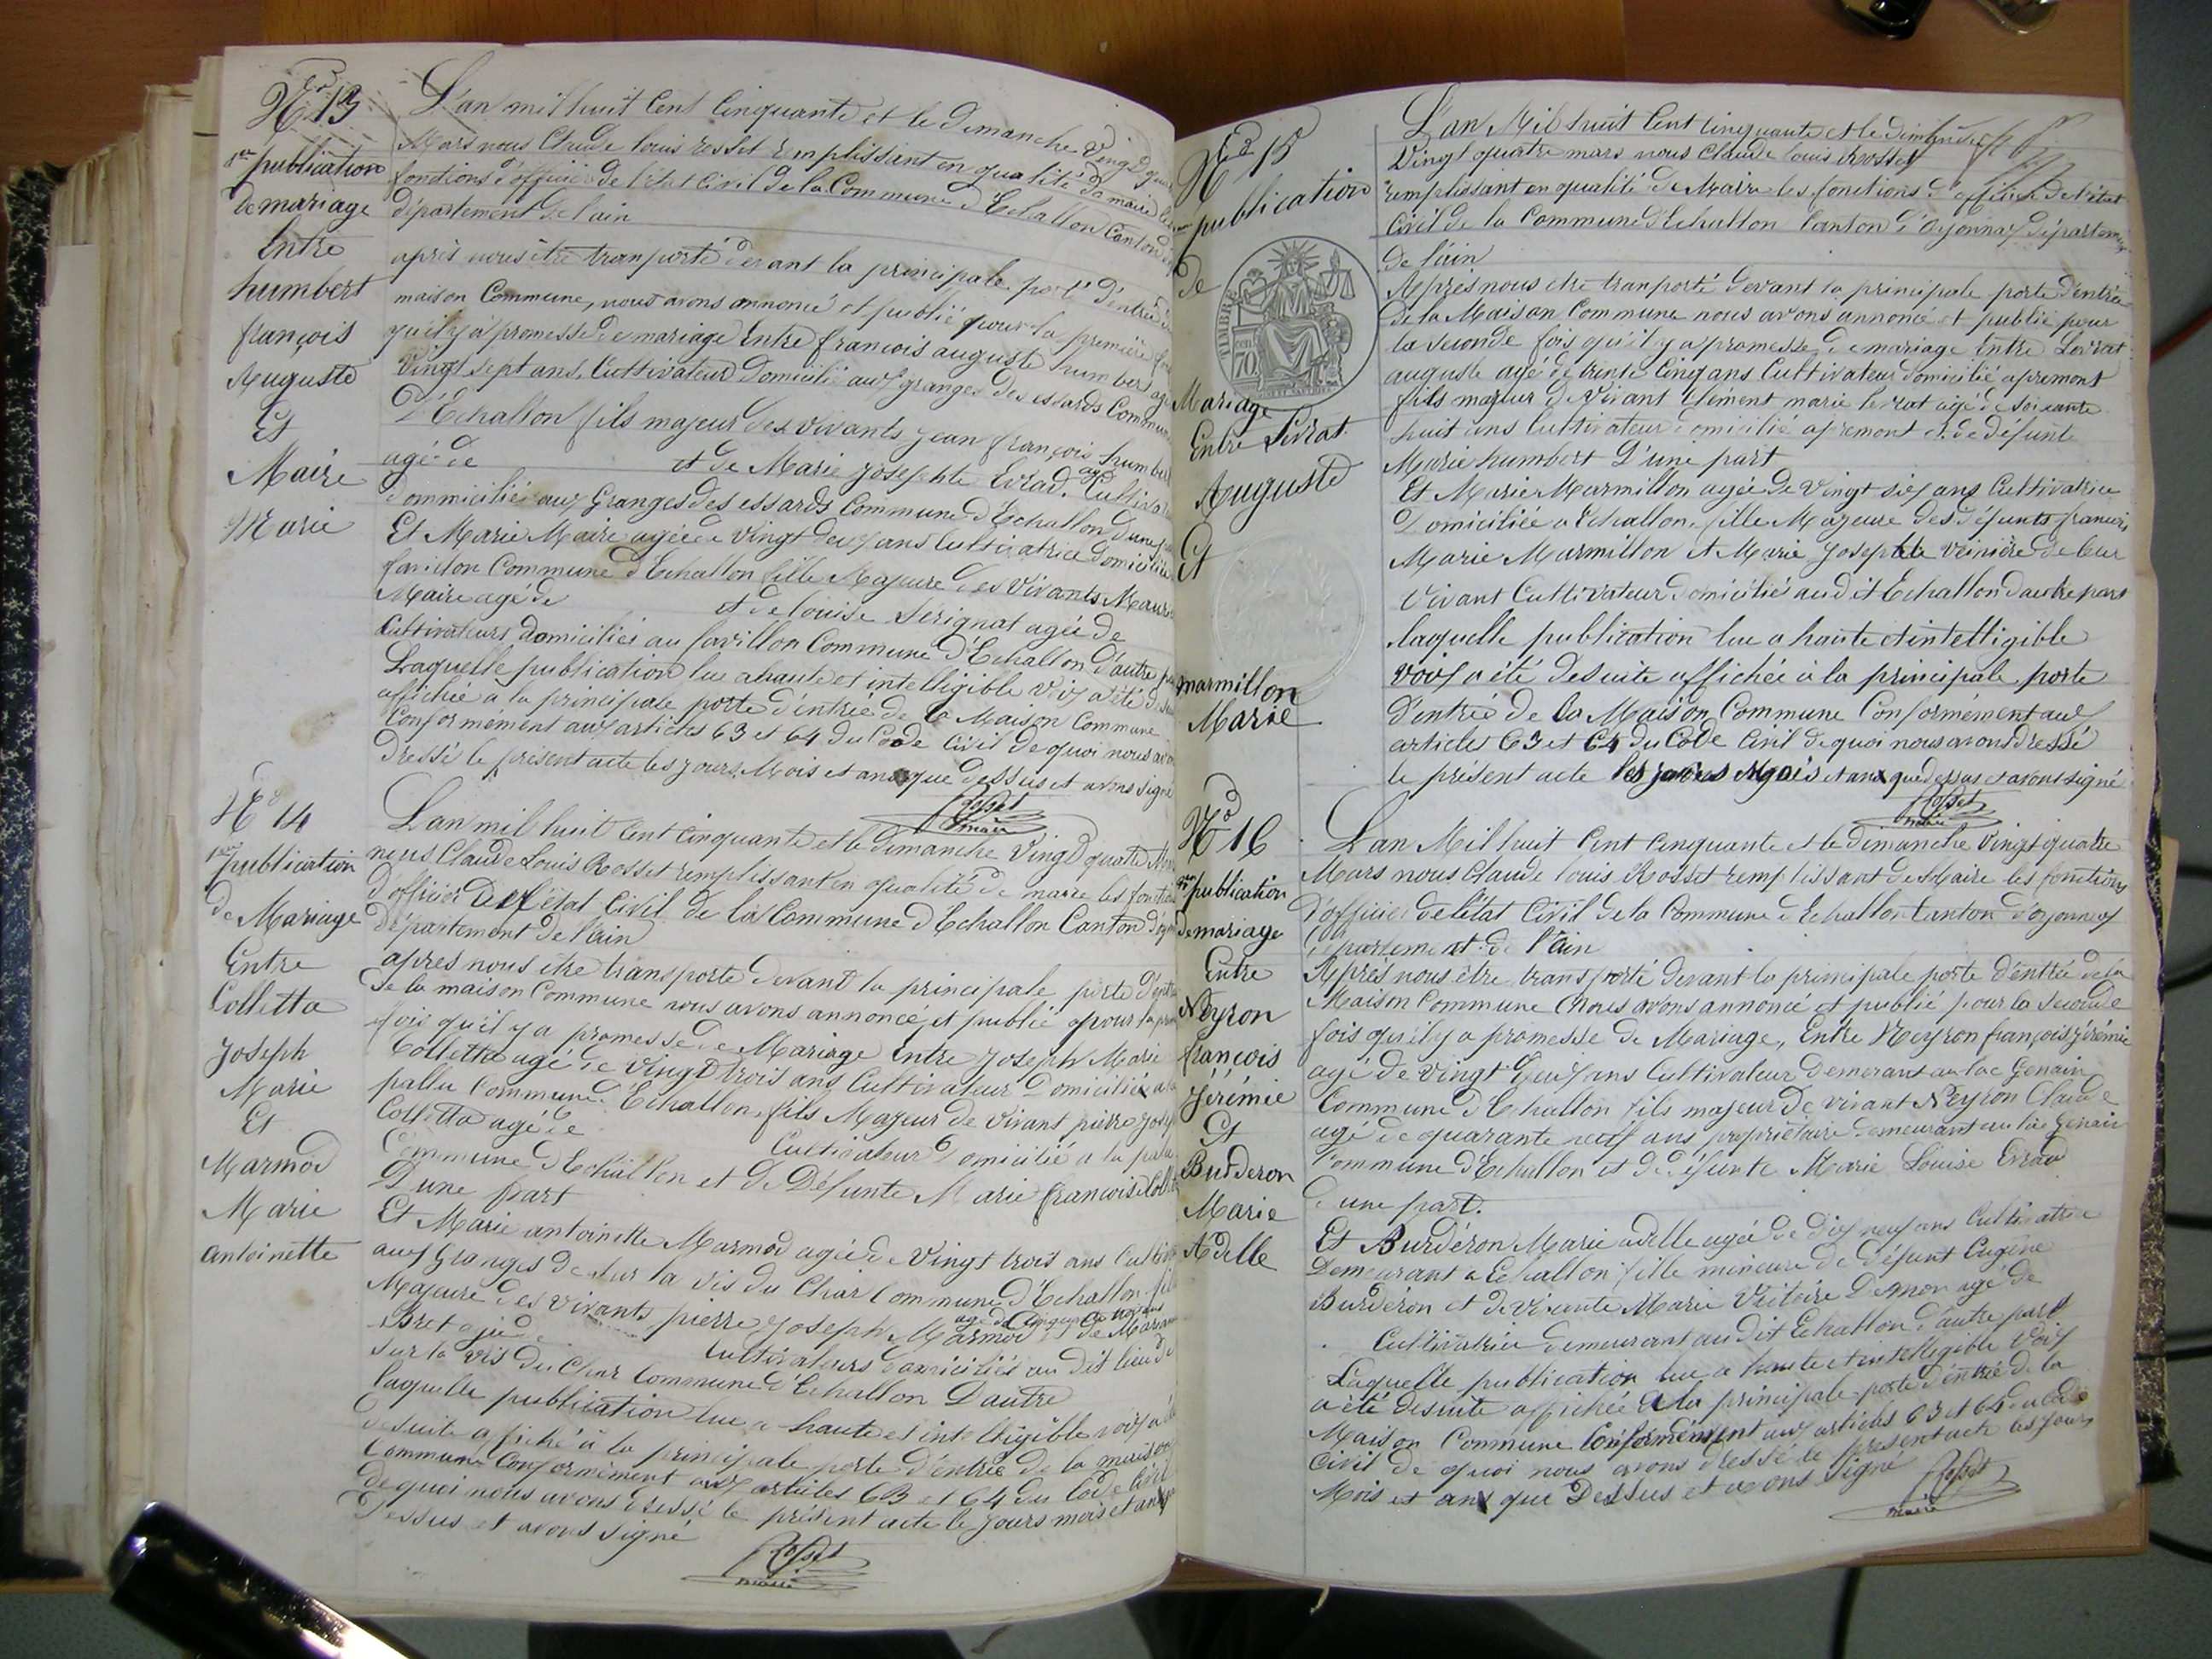 No 13
1ere publication
de mariage
Entre
humbert
françois
Auguste
Et
Maire
Marie
L'an mil huit Cent Cinquante et le dimanche Vingt
Mars nous Claude louis rosset Remplissant en qualité de maire les
fonctions d'officier de l'état Civil de la Commune d'Echallon Canton
département de l'ain
après nous être transporté devant la principale porte d'entrée
maison Commune, nous avons annoncé et publié pour la première
qu'il y a promesse de mariage Entre françois auguste humbert agé
Vingt sept ans, Cultivateur domicilié aux granges des essards Commune
D'Echallon fils majeur des vivants jean françois humbert
agé de et de Marie josephte Evrad. Cultivat
dommiciliés aux Granges des essards Commune d'Echallon d'une
Et Marie Maire agée de Vingt deux ans Cultivatrice domiciliée
favillon Commune d'Echallon fille Majeure des Vivants
Maire agé de et de louise Sérignat agée de
Cultivateurs domiciliés au favillon Commune d'Echallon d'autre
Laquelle publication lue a haute et intelligible voix a été
affichée à la principale porte d'entrée de la Maison Commune
Conformément aux articles 63 et 64 du Code Civil de quoi nous
Dressé le présent acte les jours, Mois et an que dessus et avons signé
Rosset
maire
No 14
1ere publication
de Mariage
Entre
Colletta
Joseph
Marie
Et
Marmod
Marie
antoinette
L'an mil huit Cent Cinquante et le dimanche Vingt quatre
nous Claude Louis Rosset remplissant en qualité de maire les
d'officier de l'état Civil de la Commune d'Echallon Canton
département de l'ain
apres nous être transporté devant la principale porte
de la maison Commune nous avons annoncé et publié pour la
fois qu'il y a promesse de Mariage entre Joseph Marie
Colletta agé de Vingt trois ans Cultivateur Domicilié a
pallu Commune d'Echallon, fils Majeur de Vivant pierre
Colletta agé de Cultivateur Domicilié a la
Commune d'Echallon et de Défunte Marie françoise
D'une part
Et Marie antoinette Marmod agée de Vingt trois ans
aux Granges de sur la vis du Char Commune d'Echallon
Majeure des Vivants pierre joseph Marmod agé de Cinquante de
Bret agée Cultivateurs domiciliés au dit lieu de
sur la vis du Char Commune d'Echallon D'autre
laquelle publication lue a haute et intelligible voix
de suite affiché à la principale porte d'entrée de la maison
Commune Conformément aux articles 63 et 64 du Code Civil
de quoi nous avons dressé le présent acte le jours mois et an
Dessus et avons signé
Rosset
maire
No 15
publication
de
TIMBRE
70
Mariage
Entre Levrat
Auguste
Et
marmillon
Marie
L'an Mil huit Cent Cinquante et le dimanche
Vingt quatre mars nous Claude louis Rosset
remplissant en qualité de Maire les fonctions d'officier de l'état
Civil de la Commune d'Echallon Canton d'Oyonnax départem
de l'ain
Après nous être tranporté devant la principale porte d'entrée
De la Maison Commune nous avons annoncé et publié pour
la seconde fois qu'il y a promesse de mariage entre Levrat
auguste agé de trente Cinq ans Cultivateur domicilié apremont
fils majeur de Vivant Clément marie levrat agé de soixante
huit ans Cultivateur domicilié apremont et de défunte
Marie humbert D'une part
Et Marie Marmillon agée de Vingt six ans Cultivatrice
Domiciliée a Echallon, fille Majeure des défunts françois
Marie Marmillon et Marie Josephte Veinière de leur
Vivant Cultivateur domiciliés audit Echallon d'autre part
laquelle publication lue a haute et intelligible
voix a été de suite affichée à la principale porte
D'entrée de la Maison Commune Conformément aux
articles 63 et 64 du Code Civil de quoi nous avons dressé
le présent acte les jours Mois et an que dessus et avons signé
Rosset
maire
No 16
publication
de mariage
Entre
Neyron
françois
jérémie
Et
Burderon
Marie
Adelle
L'an Mil huit Cent Cinquante et le dimanche Vingt quatre
Mars nous Claude louis Rosset remplissant de Maire les fonctions
D'officier de l'état Civil de la Commune d'Echallon Canton d'oyonnax
département de l'ain
Après nous être transporté devant la principale porte d'entrée de la
Maison Commune Nous avons annoncé et publié pour la seconde
fois qu'il y a promesse de Mariage, Entre Neyron françois jérémie
agé de vingt deux ans Cultivateur demeurant au lac Genain
Commune d'Echallon fils majeur de vivant Neyron Claude
agé de quarante neuf ans propriétaire demeurant au lac Genain
Commune d'Echallon et de défunte Marie Louise Evrad
d'une part.
Et Burdéron Marie adelle agée de dix neuf ans Cultivatrice
Demeurant a Echallon fille mineure de défunt Eugène
Burdéron et de Vivante Marie Victoire agé de
Cultivatrice demeurant au dit Echallon d'autre part
Laquelle publication lue a haute et intelligible voix
a été de suite affichée a la principale porte d'entrée de la
Maison Commune Conformément aux articles 63 et 64 du Code
Civil de quoi nous avons dressé le present acte les jours
Mois et an que Dessus et avons signé
Rosset
maire